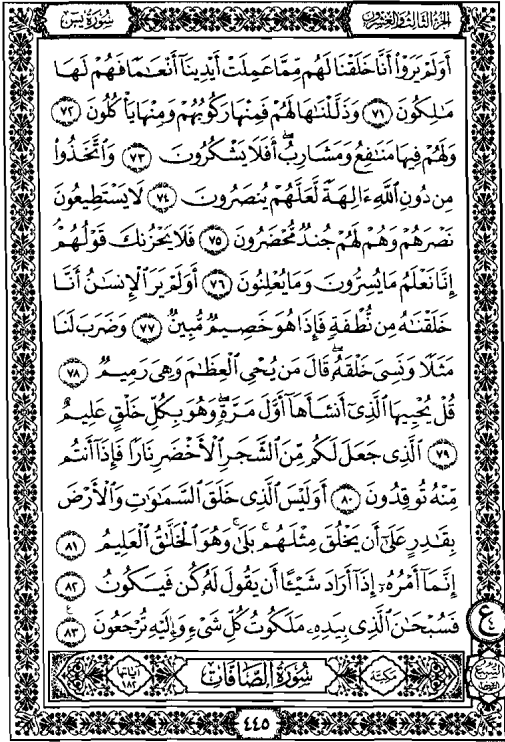 الجزء الثالث والعشرون سورة يس
أَوَلَمْ يَرَوْا۟ أَنَّا خَلَقْنَا لَهُم مِّمَّا عَمِلَتْ أَيْدِينَآ أَنْعَـٰمًا فَهُمْ لَهَا
مَـٰلِكُونَ ٧١ وَذَلَّلْنَـٰهَا لَهُمْ فَمِنْهَا رَكُوبُهُمْ وَمِنْهَا يَأْكُلُونَ ٧٢
وَلَهُمْ فِيهَا مَنَـٰفِعُ وَمَشَارِبُ ۖ أَفَلَا يَشْكُرُونَ ٧٣ وَٱتَّخَذُوا۟
مِن دُونِ ٱللَّهِ ءَالِهَةً لَّعَلَّهُمْ يُنصَرُونَ ٧٤ لَا يَسْتَطِيعُونَ
نَصْرَهُمْ وَهُمْ لَهُمْ جُندٌ مُّحْضَرُونَ ٧٥ فَلَا يَحْزُنكَ قَوْلُهُمْ ۘ
إِنَّا نَعْلَمُ مَا يُسِرُّونَ وَمَا يُعْلِنُونَ ٧٦ أَوَلَمْ يَرَ ٱلْإِنسَـٰنُ أَنَّا
خَلَقْنَـٰهُ مِن نُّطْفَةٍ فَإِذَا هُوَ خَصِيمٌ مُّبِينٌ ٧٧ وَضَرَبَ لَنَا
مَثَلًا وَنَسِىَ خَلْقَهُۥ ۖ قَالَ مَن يُحْىِ ٱلْعِظَـٰمَ وَهِىَ رَمِيمٌ ٧٨
قُلْ يُحْيِيهَا ٱلَّذِىٓ أَنشَأَهَآ أَوَّلَ مَرَّةٍ ۖ وَهُوَ بِكُلِّ خَلْقٍ عَلِيمٌ
٧٩ ٱلَّذِى جَعَلَ لَكُم مِّنَ ٱلشَّجَرِ ٱلْأَخْضَرِ نَارًا فَإِذَآ أَنتُم
مِّنْهُ تُوقِدُونَ ٨٠ أَوَلَيْسَ ٱلَّذِى خَلَقَ ٱلسَّمَـٰوَٰتِ وَٱلْأَرْضَ
بِقَـٰدِرٍ عَلَىٰٓ أَن يَخْلُقَ مِثْلَهُم ۚ بَلَىٰ وَهُوَ ٱلْخَلَّـٰقُ ٱلْعَلِيمُ ٨١
إِنَّمَآ أَمْرُهُۥٓ إِذَآ أَرَادَ شَيْـًٔا أَن يَقُولَ لَهُۥ كُن فَيَكُونُ ٨٢
فَسُبْحَـٰنَ ٱلَّذِى بِيَدِهِۦ مَلَكُوتُ كُلِّ شَىْءٍ وَإِلَيْهِ تُرْجَعُونَ ٨٣
ع ٤
مكية سورة الصافات آياتها ١٨٢
٤٤٥